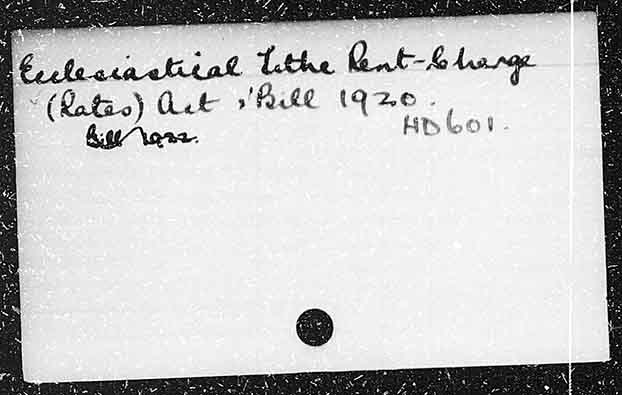 Ecclesiastical Tithe Rent-Charge
(Rates) Act & Bill 1920.
Bill 1922.
HD601.